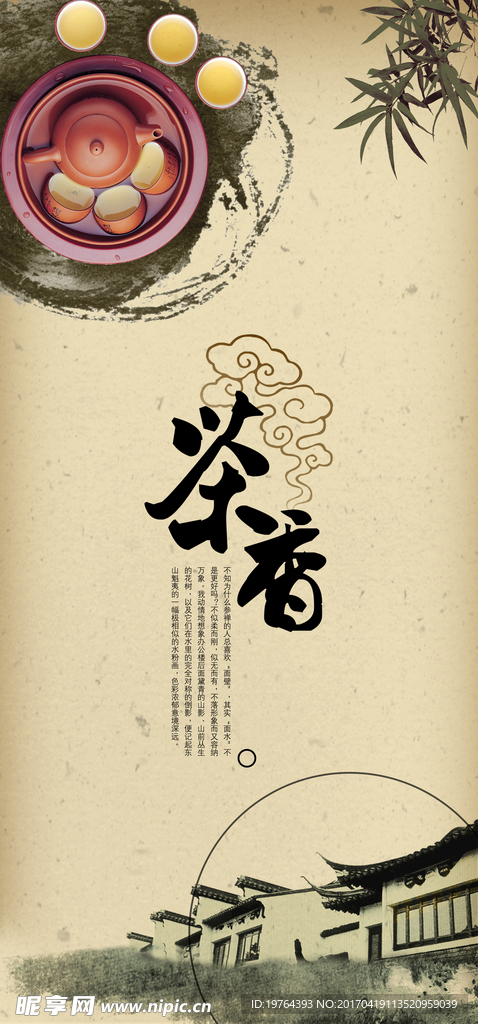 茶香
不知为什么参禅的人总喜欢“面壁”,其实“面水”不
是更好吗?不似柔而刚,似无而有,不落形象而又容纳
万象。我动情地想象办公楼后面黛青的山影、山前丛生
的花树,以及它们在水里的完全对称的倒影,便记起东
山魁夷的一幅极相似的水粉画,色彩浓郁意境深远。
昵享网 www.nipic.cn
ID:19764393 NO:20170419113520959039